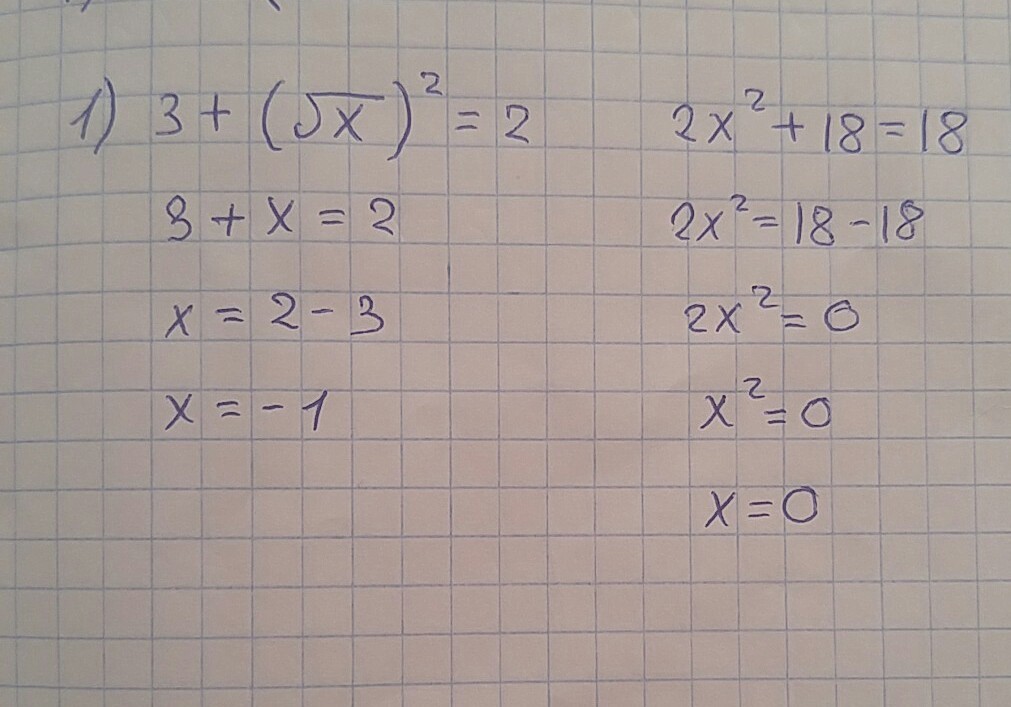 1) 3 + (√x)² = 2
3 + x = 2
x = 2 - 3
x = -1
2x² + 18 = 18
2x² = 18 - 18
2x² = 0
x² = 0
x = 0